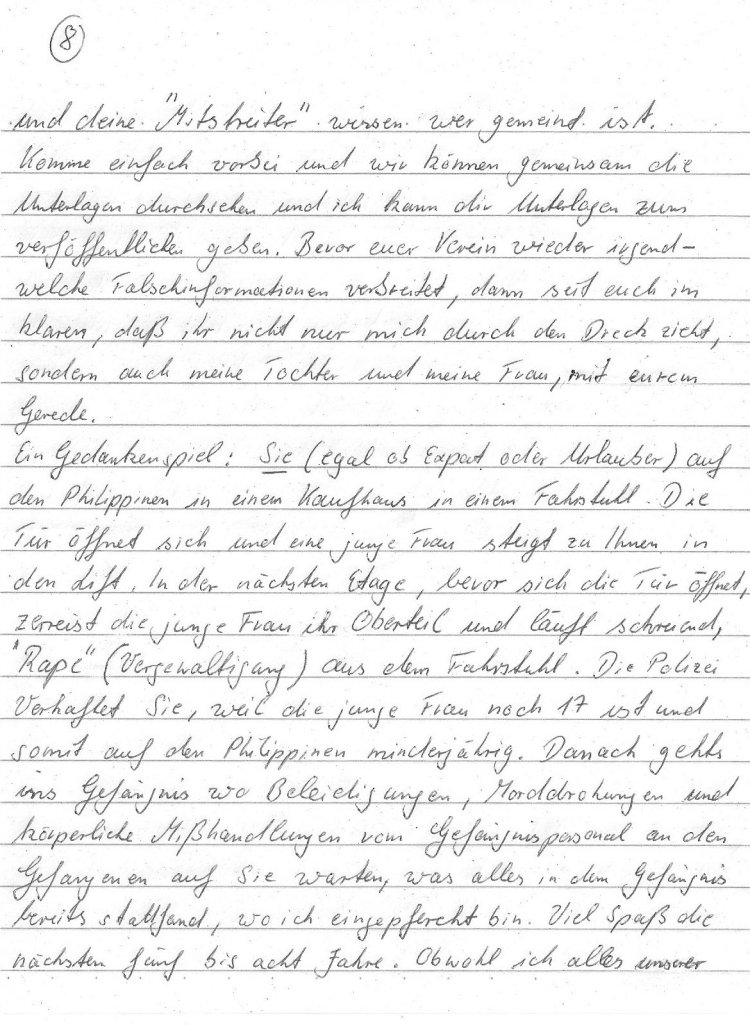 8
und deine "Mitstreiter" wissen wer gemeind ist.
Komme einfach vorbei und wir können gemeinsam die
Unterlagen durchsehen und ich kann dir Unterlagen zum
verföffentlichen geben. Bevor euer Verein wieder irgend-
welche Falschinformationen verbreitet, dann seit euch im
klaren, daß ihr nicht nur mich durch den Dreck zieht,
sondern auch meine Tochter und meine Frau, mit eurem
Gerede.
Ein Gedankenspiel: Sie (egal ob Expat oder Urlauber) auf
den Philippinen in einem Kaufhaus in einem Fahrstuhl. Die
Tür öffnet sich und eine junge Frau steigt zu Ihnen in
den Lift. In der nächsten Etage, bevor sich die Tür öffnet,
zerreist die junge Frau ihr Oberteil und läuft schreiend,
"Rape" (Vergewaltigung) aus dem Fahrstuhl. Die Polizei
verhaftet Sie, weil die junge Frau noch 17 ist und
somit auf den Philippinen minderjährig. Danach gehts
ins Gefängnis wo Beleidigungen, Morddrohungen und
körperliche Mißhandlungen vom Gefängnispersonal an den
Gefangenen auf Sie warten, was alles in dem Gefängnis
bereits stattfand, wo ich eingepfercht bin. Viel Spaß die
nächsten fünf bis acht Jahre. Obwohl ich alles unserer